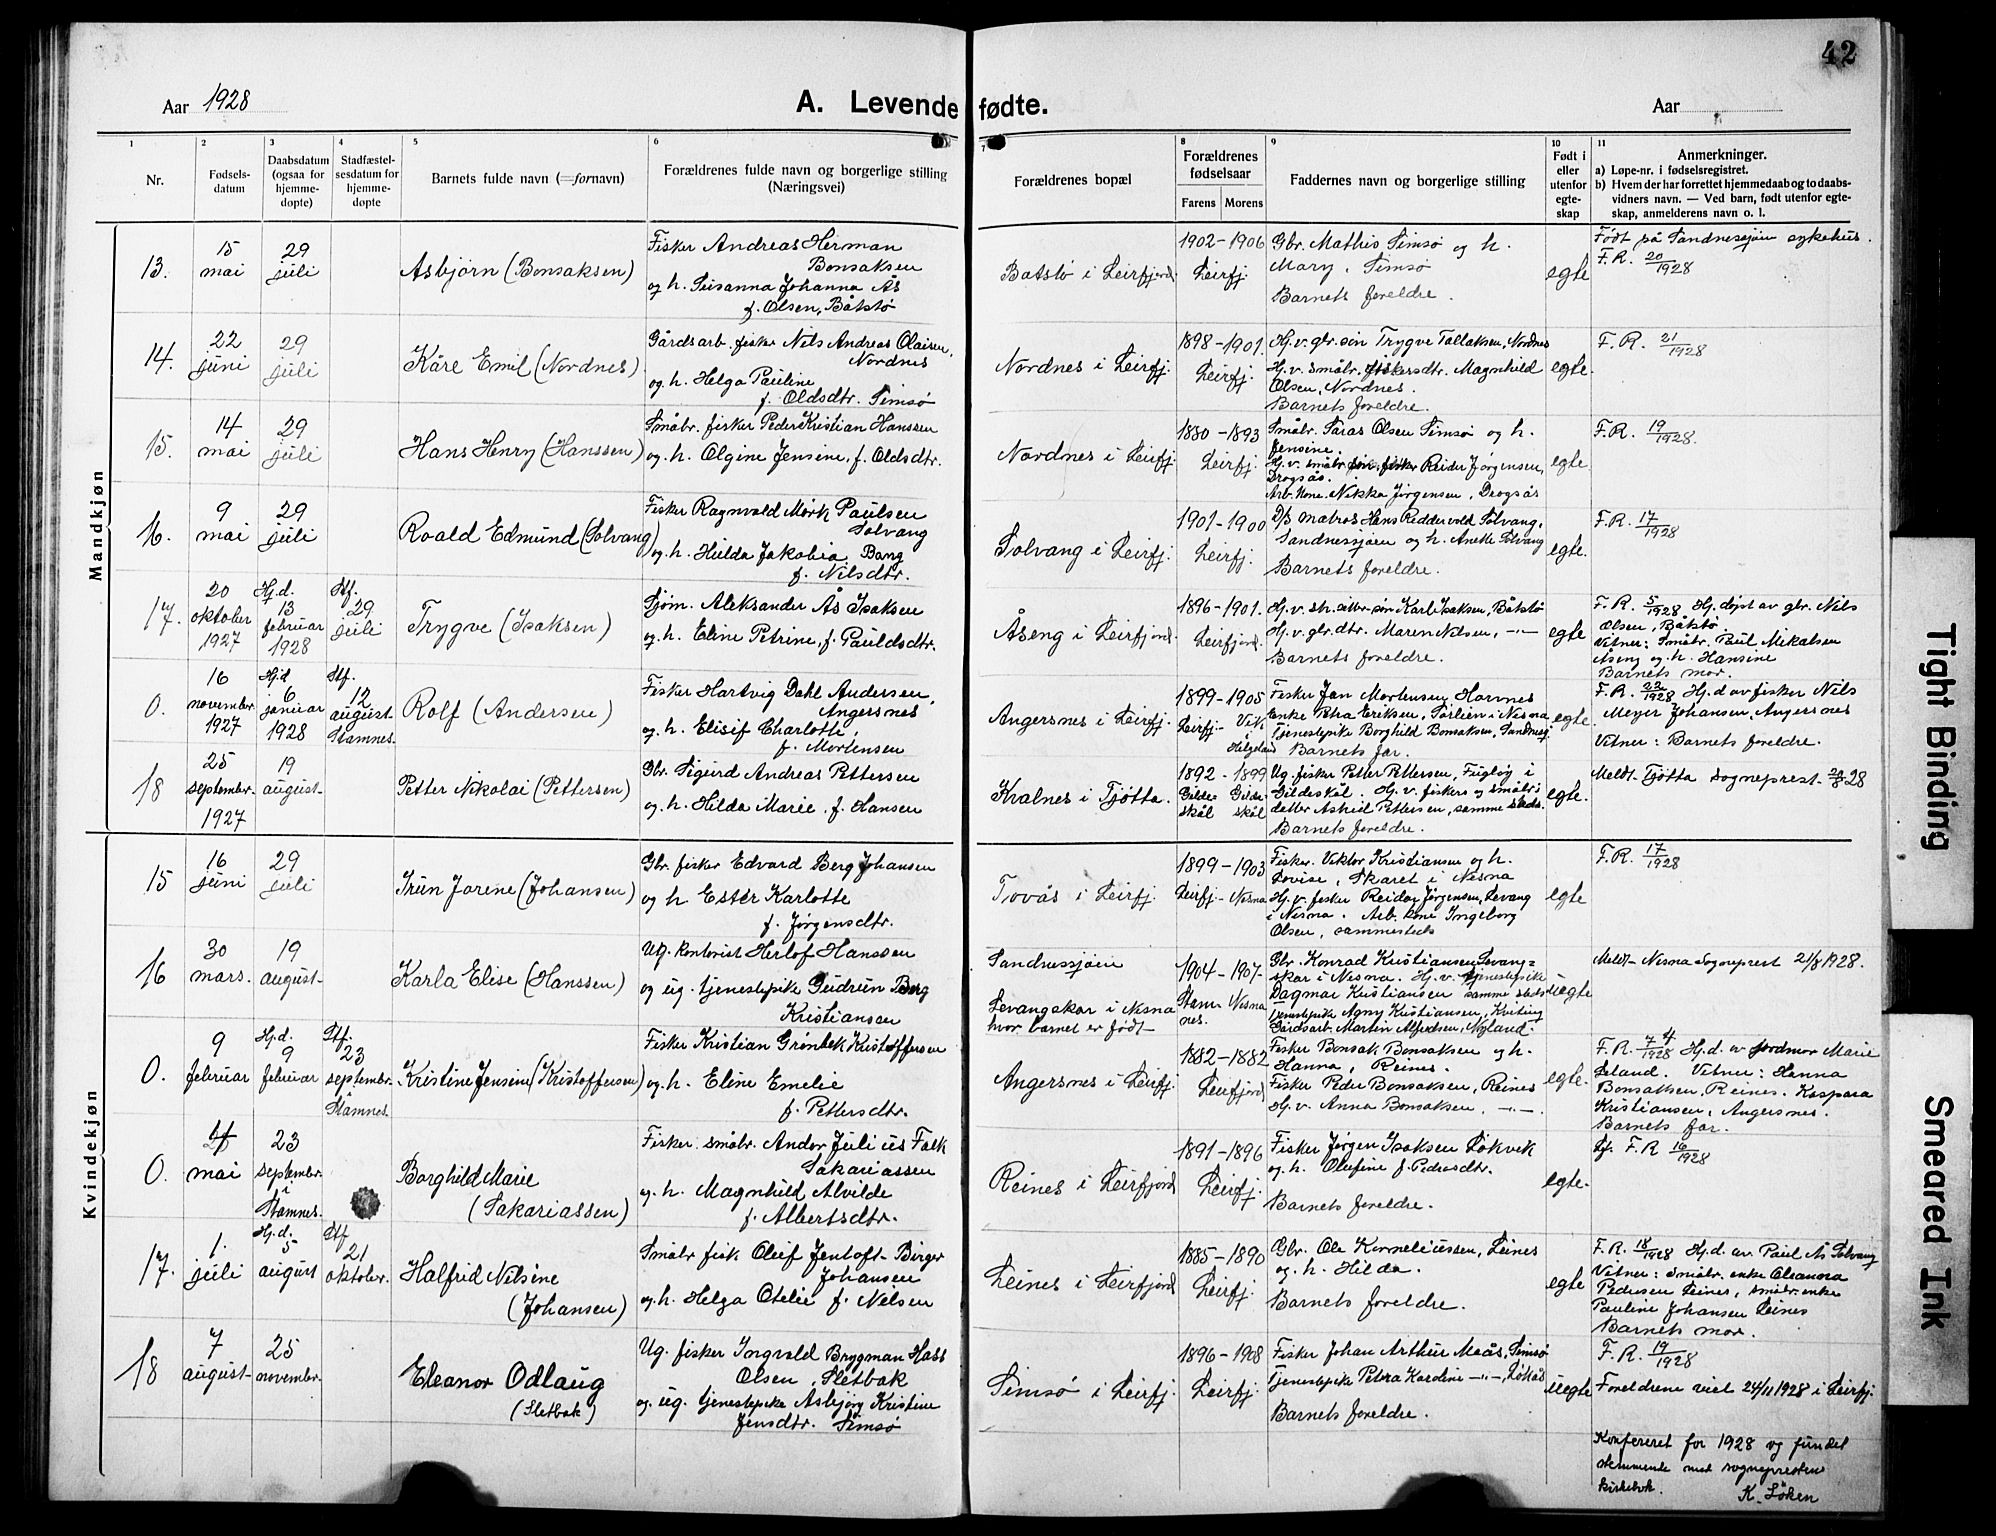 42
Aar 1928
A. Levende fødte.
Aar
1 2 3 4 5 6 7 8 9 10 11
Nr.
Fødsels-
datum
Daabsdatum
(ogsaa for
hjemme-
døpte)
Stadfæstel-
sesdatum for
hjemme-
døpte
Barnets fulde navn (=fornavn)
Forældrenes fulde navn og borgerlige stilling
(Næringsvei)
Forældrenes bopæl
Forældrenes
fødselsaar
Farens Morens
Faddernes navn og borgerlige stilling
Født i
eller
utenfor
egte-
skap
Anmerkninger.
a) Løpe-nr. i fødselsregistret.
b) Hvem der har forrettet hjemmedaab og to daabs-
vidners navn. — Ved barn, født utenfor egte-
skap, anmelderens navn o. l.
Mandkjøn
13.
15
mai
29
juli
Asbjørn (Bonsaksen)
Fisker Andreas Herman
Bonsaksen
og h. Susanna Johanna Ås
f. Olsen, Båtstø
Batstø i Leirfjord.
1902 - 1906
Leirfj.
Gbr. Mathis Simsø og h.
Mary, Simsø
Barnets foreldre.
egte
Født på Sandnessjøen sykehus.
F. R. 20/1928
14.
22
juni
29
juli
Kåre Emil (Nordnes)
Gårdsarb. fisker Nils Andreas Olaisen,
Nordnes
og h. Helga Pauline
f. Oldsdtr. Simsø
Nordnes i Leirfj.
1898 - 1901.
Leirfj.
Hj. v. gbr. søn Trygve Tollaksen, Nordnes
Hj. v. småbr. fiskersdtr. Magnhild
Olsen, Nordnes.
Barnets foreldre.
egte.
F. R. 21/1928
15.
14
mai
29
juli
Hans Henry (Hanssen)
Småbr. fisker Peder Kristian Hanssen
og h. Olgine Jensine, f. Oldsdtr.
Nordnes i Leirfj.
1880 - 1893
Leirfj.
Småbr. Saras Olsen Simsø og h.
Jensine.
Hj. v. småbr. søn, fisker Reidar Jørgensen,
Drogsås.
Arb. kone Nikka Jørgensen, Drogsås
egte
F.R. 19/1928.
16.
9
mai
29
juli
Roald Edmund (Solvang)
Fisker Ragnvald Mørk Paulsen
Solvang
og h. Hulda Jakobia Bang
f. Nilsdtr.
Solvang i Leirfj.
1901 - 1900
Leirfj.
D/S matros Hans Reddervold Solvang,
Sandnessjøen og h. Anette Solvang
Barnets foreldre.
egte.
F.R. 17/1928
17.
20
oktober
1927
Hj.d.
13
februar
1928
Stf.
29
juli
Trygve (Isaksen)
Sjøm. Aleksander Ås Isaksen
og h. Eline Petrine, f. Pauldsdtr.
Åseng i Leirfjord.
1896 - 1901.
Leirfjord.
Karl Isaksen, Båtstø
Hj. v. gbr. dtr. Maren Nilsen, -"-
Barnets foreldre.
egte
F. R. 5/1928 Hj. døpt av gbr. Nils
Olsen, Båtstø.
Vitner: Småbr. Paul Mikalsen
Åseng og h. Hansine
Barnets mor.
0.
16
november
1927
Hj.d
6
januar
1928
Stf.
12
august
Stamnes.
Rolf (Andersen)
Fisker Hartvig Dahl Andersen,
Angersnes
og h. Elisif Charlotte,
f. Mortensen
Angersnes i Leirfj.
1899 - 1905
Leirfj. - Vik
i
Helgeland
Fisker Jan Mortensen Havnnes
Enke Petra Eriksen, Sørlien i Nesna
Tjenestepike Borghild Bonsaksen, Sandnessj.
Barnets far.
egte.
F. R. 22/1928 Hj. d av fisker Nils
Meyer Johansen, Angersnes
Vitner: Barnets foreldre.
18
25
september
1927
19
august
Petter Nikolai (Pettersen)
Gbr. Sigurd Andreas Pettersen
og h. Hilda Marie f. Hansen
Kvalnes i Tjøtta.
1892 - 1899
Gilde-
skål
Gilde-
skål
Ug. fisker Petter Pettersen, Fugløy i
Gildeskål. Hj. v. fisker og småbr.
datter Astrid Pettersen, samme steds.
Barnets foreldre.
egte.
Meldt Tjøtta sogneprest 28
Kvindekjøn
15
16
juni
29
juli
Irun Jorene (Johansen)
Gbr. fisker Edvard Berg Johansen
og h Ester Karlotte
f. Jørgensdtr.
Tovås i Leirfj.
1899 - 1903
Leirfj. - Nesna
Fisker. Viktor Kristiansen og h.
Lovise, Skaret i Nesna
Hj. v. fisker Reidar Jørgensen, Levang
i Nesna. Arb. kone Ingeborg
Olsen, sammesteds
egte
F.R. 17/1928
16
30
mars.
19
august
Karla Elise (Hanssen)
Ug. kontorist Herlof Hanssen
og ug. tjenestepike Gudrun Berg
Kristiansen
Sandnessjøen
Levangskar i Nesna
hvor barnet er født
1904 - 1907
Stam-
nes.
Nesna
Gbr. Konrad Kristiansen Levang-
skar i Nesna. Hj. v. tjenestepike
Dagmar Kristiansen samme steds
Tjenestepike Agny Kristiansen, Kviting
Gårdsarb. Martin Alfredsen, Nyland.
uegte
Meldt Nesna Sogneprest 2/8 1928.
0.
9
februar
Hj.d.
9
februar
Stf.
23
septembr.
i
Stamnes.
Kristine Jensine (Kristoffersen)
Fisker Kristian Grønbek Kristoffersen
og h. Eline Emelie
f. Pettersdtr.
Angersnes i Leirfj.
1882 - 1882
Leirfjord
Fisker Bonsak Bonsaksen og h.
Hanna, Reines.
Fisker Peder Bonsaksen, Reines
Hj. v. Anna Bonsaksen. -"-
egte.
F. R. 74/1928 Hj. d. av jordmor Marie
Leland. Vitner: Hanna
Bonsaksen, Reines. Kaspara
Kristiansen, Angersnes.
Barnets far.
0.
4
mai
23
septembr.
i
Stamnes.
Borghild Marie
(Sakariassen)
Fisker småbr. Andor Julius Falk
Sakariassen
og h. Magnhild Alvilde
f. Albertsdtr.
Reines i Leirfjord
1891 - 1896
Leirfj.
Fisker Jørgen Isaksen Løkvik
og h. Olufine f. Pedersdtr.
Barnets foreldre.
egte.
F. R 16/1928
17.
1.
juli
Hj.d.
5
august
Stf
21
oktober.
Halfrid Nilsine
(Johansen)
Småbr fisk Oluf Jentoft Birger
Johansen
og h. Helga Otelie f. Nelsen
Leines i Leirfjord
1885 - 1890
Leirfj.
Gbr. Ole Korneliussen, Leines
og h. Hilda.
Barnets foreldre.
egte
F. R. 18/1928 Hj. d. av Paul Ås Solvang
Vitner: småbr. enke Eleanora
Pedersen Leines, småbr. enke
Pauline Johansen Leines
Barnets mor.
18
7
august
25
november
Eleanor Odlaug
(Sletbak)
Ug. fisker Ingvald Brygman Hass
Olsen, Sletbak
og ug. tjenestepike Asbjørg Kristine
Jensdtr. Simsø
Simsø i Leirfj.
1896 - 1908
Leirfj.
Fisker Johan Arthur Moås, Simsø
Tjenestepike Petra Kardine -"-,
Barnets foreldre.
uegte
F. R. 19/1928
Foreldrene viet 24/11 1928 i Leirfj.
Konferert for 1928 og fundet
stemmende med sogneprestens
kirkebok.
K. Løken
Tight Binding
Smeared Ink